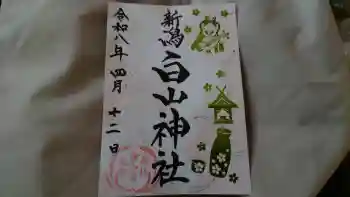 新潟
白山神社
令和八年 四月 十二日